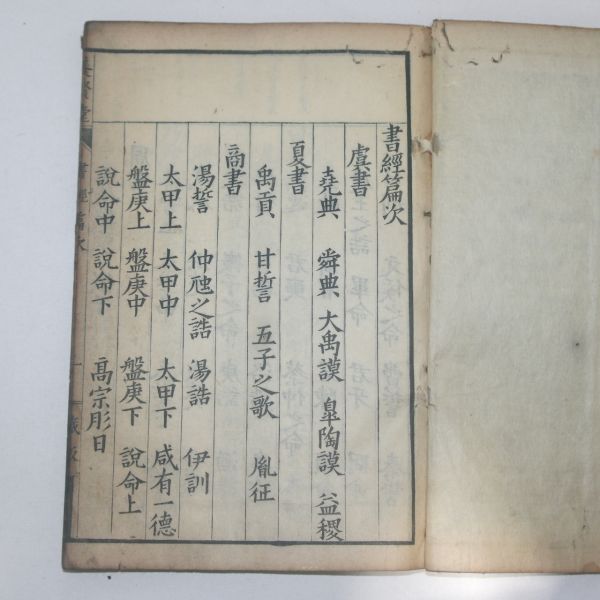 書經篇次
虞書
堯典 舜典 大禹謨 臯陶謨 益稷
夏書
禹貢 甘誓 五子之歌 胤征
商書
湯誓 仲虺之誥 湯誥 伊訓
太甲上 太甲中 太甲下 咸有一德
盤庚上 盤庚中 盤庚下 說命上
說命中 說命下 高宗肜日
書經篇次